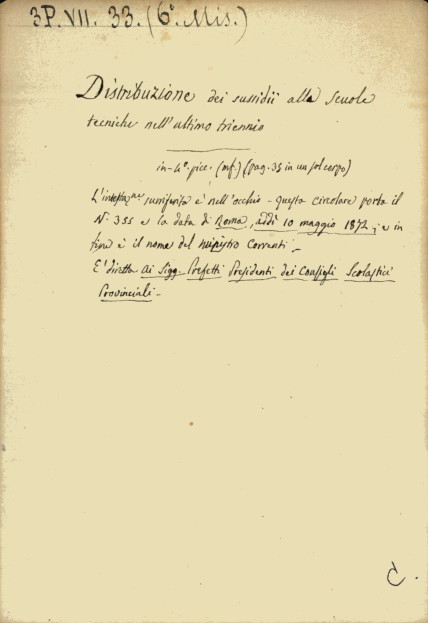 3P. VII. 33. (6ª. Mis.)
Distribuzione dei sussidii alle scuole
tecniche nell'ultimo triennio
in-4º. picc. (mf.) (pag. 35 in un sol corpo)
L'intestaz.ne surriferita è nell'occhio - Questa circolare porta il
Nº. 355 e la data di Roma, addì 10 maggio 1872, ; e in
fine è il nome del ministro Correnti -
E' diretta Ai Sigg. Prefetti Presidenti dei Consigli Scolastici
Provinciali -
C.